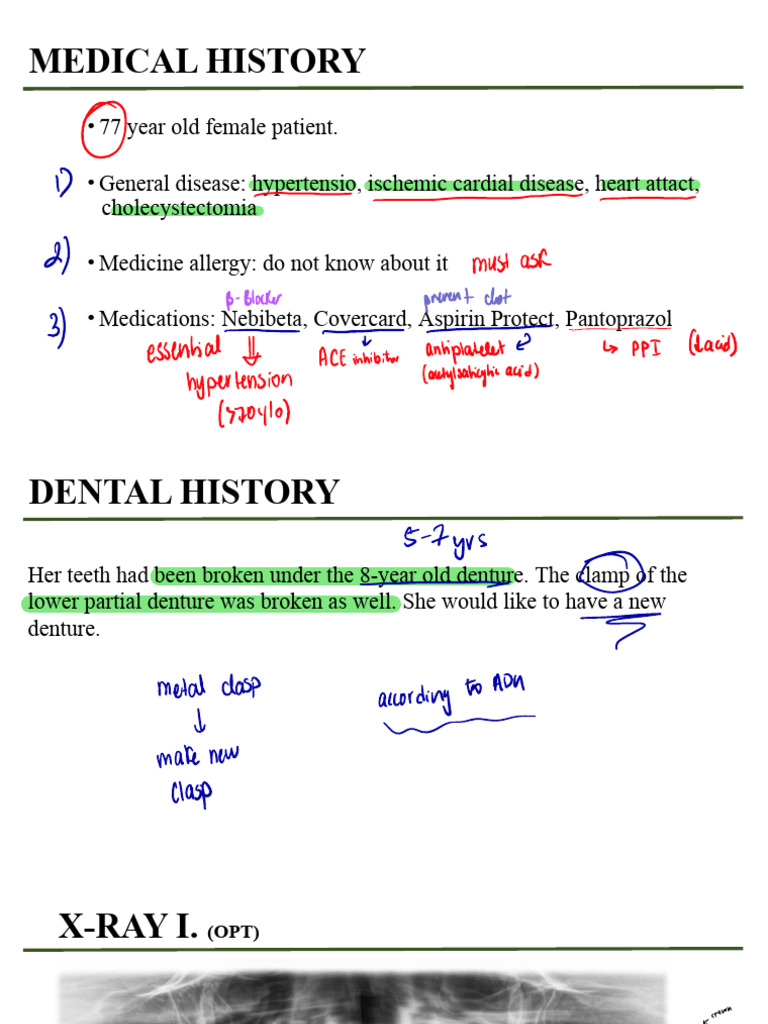 MEDICAL HISTORY
• 77 year old female patient.
1) • General disease: hypertensio, ischemic cardial disease, heart attact,
cholecystectomia
2) • Medicine allergy: do not know about it must ask
β-Blocker prevent clot
3) • Medications: Nebibeta, Covercard, Aspirin Protect, Pantoprazol
essential ⇓ ↓ ACE inhibitor antiplatelet ↳ PPI (↓acid)
hypertension (acetylsalicylic acid)
DENTAL HISTORY
5-7 yrs
Her teeth had been broken under the 8-year old denture. The clamp of the
lower partial denture was broken as well. She would like to have a new
denture.
metal clasp according to ADA
↓
make new
clasp
X-RAY I. (OPT)
crown